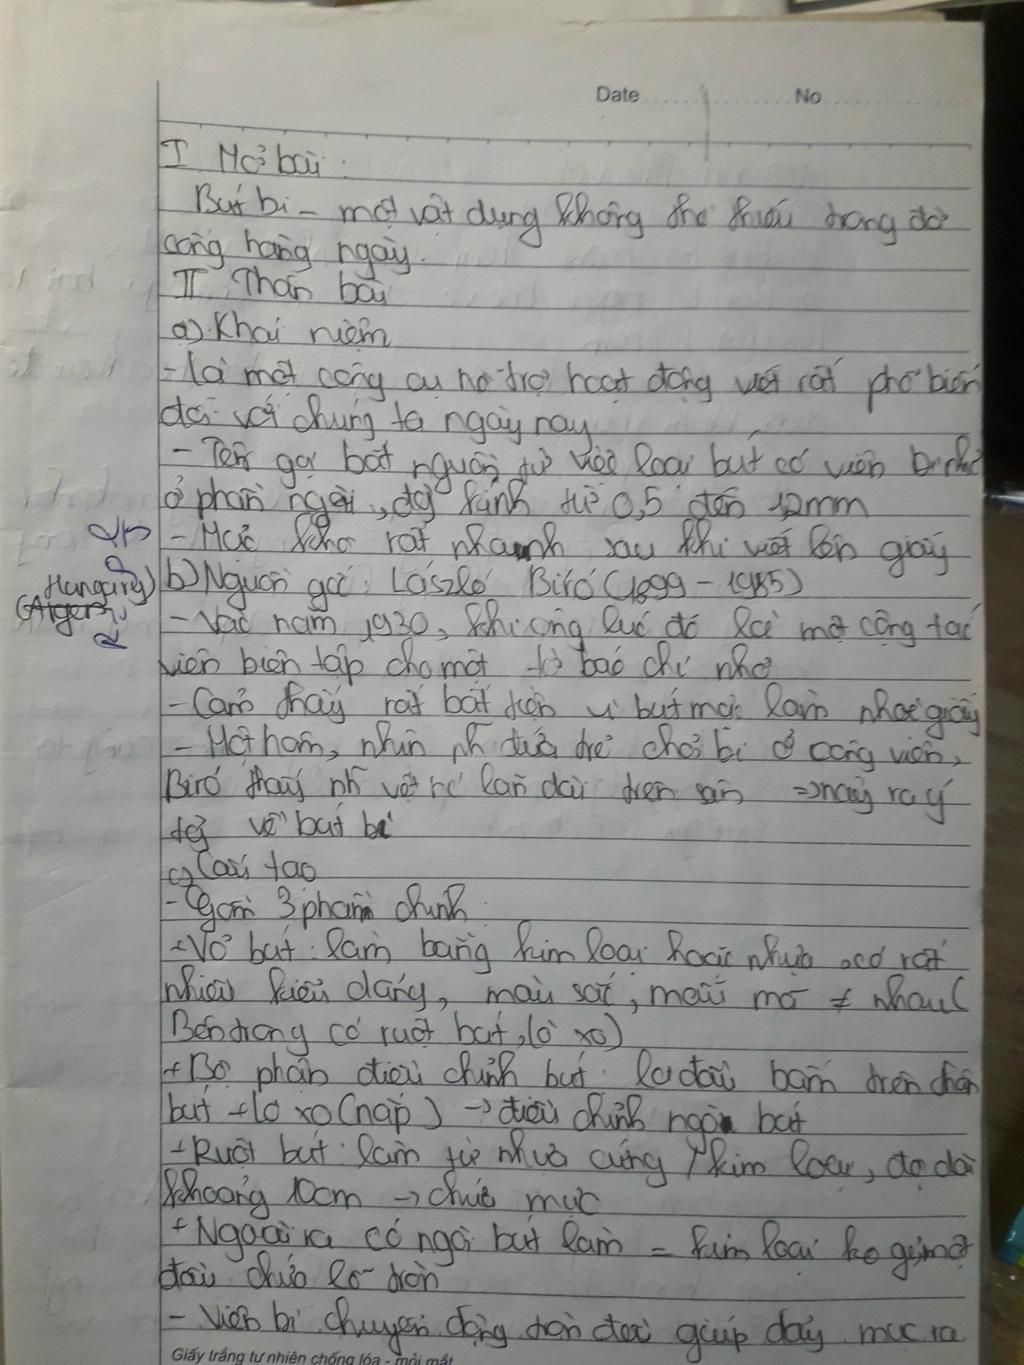 Date No
I Mở bài:
Bút bi - một vật dụng không thể thiếu trong đời
công hàng ngày.
II Thân bài
a) Khái niệm
- Là một công cụ hỗ trợ hoạt động viết rất phổ biến
đối với chúng ta ngày nay
- Tên gọi bắt nguồn từ việc loại bút có viên bi nhỏ
ở phần ngòi, đg kính từ 0,5 đến 1,2mm
- Mực khô rất nhanh sau khi viết lên giấy
Hungary) b) Nguồn gốc: László Biró (1899 - 1985)
- Vào năm 1930, khi ông lúc đó là một cộng tác
viên biên tập cho một tờ báo chí nhỏ
- Cảm thấy rất bất tiện vì bút mực làm nhoè giấy
- Một hôm, nhìn nh đứa trẻ chơi bi ở công viên,
Biró thấy nh vật nó lăn dài trên sân => nảy ra ý
tg về bút bi
c) Cấu tạo
- Gồm 3 phần chính:
+ Vỏ bút: làm bằng kim loại hoặc nhựa, có rất
nhiều kiểu dáng, màu sắc, mẫu mã ≠ nhau (
Bên trong có ruột bút, lò xo)
+ Bộ phận điều chỉnh bút: là đầu bấm trên thân
bút + lò xo (nắp) -> điều chỉnh ngòi bút
+ Ruột bút: làm từ nhựa cứng / kim loại, độ dài
khoảng 10cm -> chứa mực
+ Ngoài ra có ngòi bút làm = kim loại ko gỉ, một
đầu chứa lỗ tròn
- Viên bi chuyển động tròn đều giúp đẩy mực ra
Giấy trắng tự nhiên chống lóa - mỏi mắt